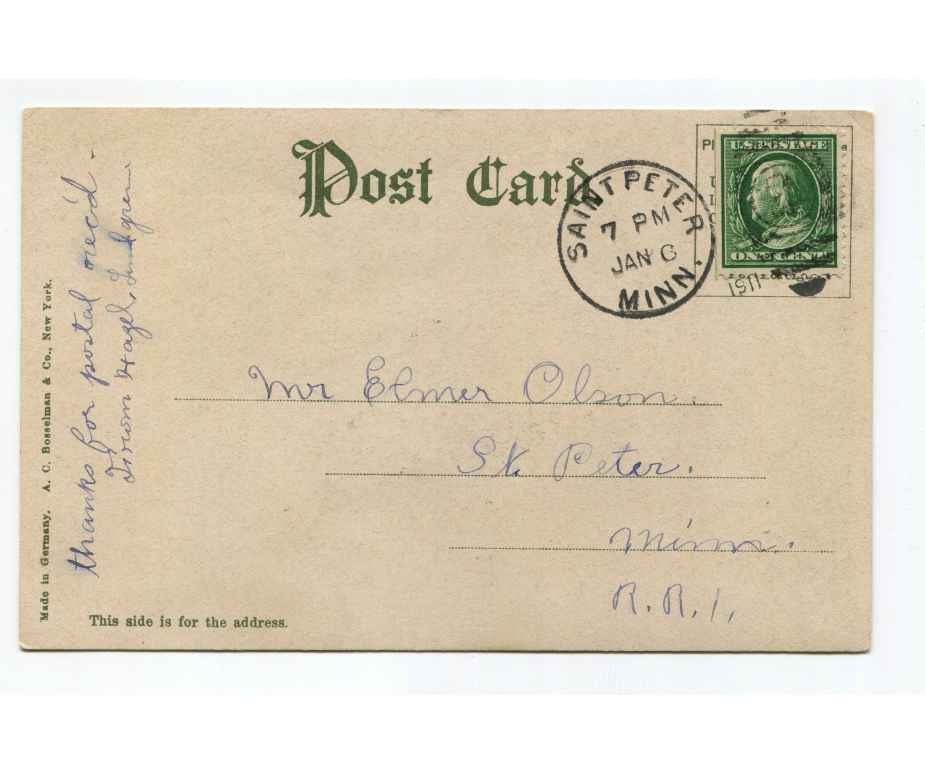 Post Card
SAINT PETER
7 PM
JAN 6
MINN.
U.S. POSTAGE
ONE CENT
Mr Elmer Olson.
St. Peter.
Minn.
R.R.1.
thanks for postal rec'd.
From Hazel Lindgren
Made in Germany. A. C. Bosselman & Co., New York.
This side is for the address.